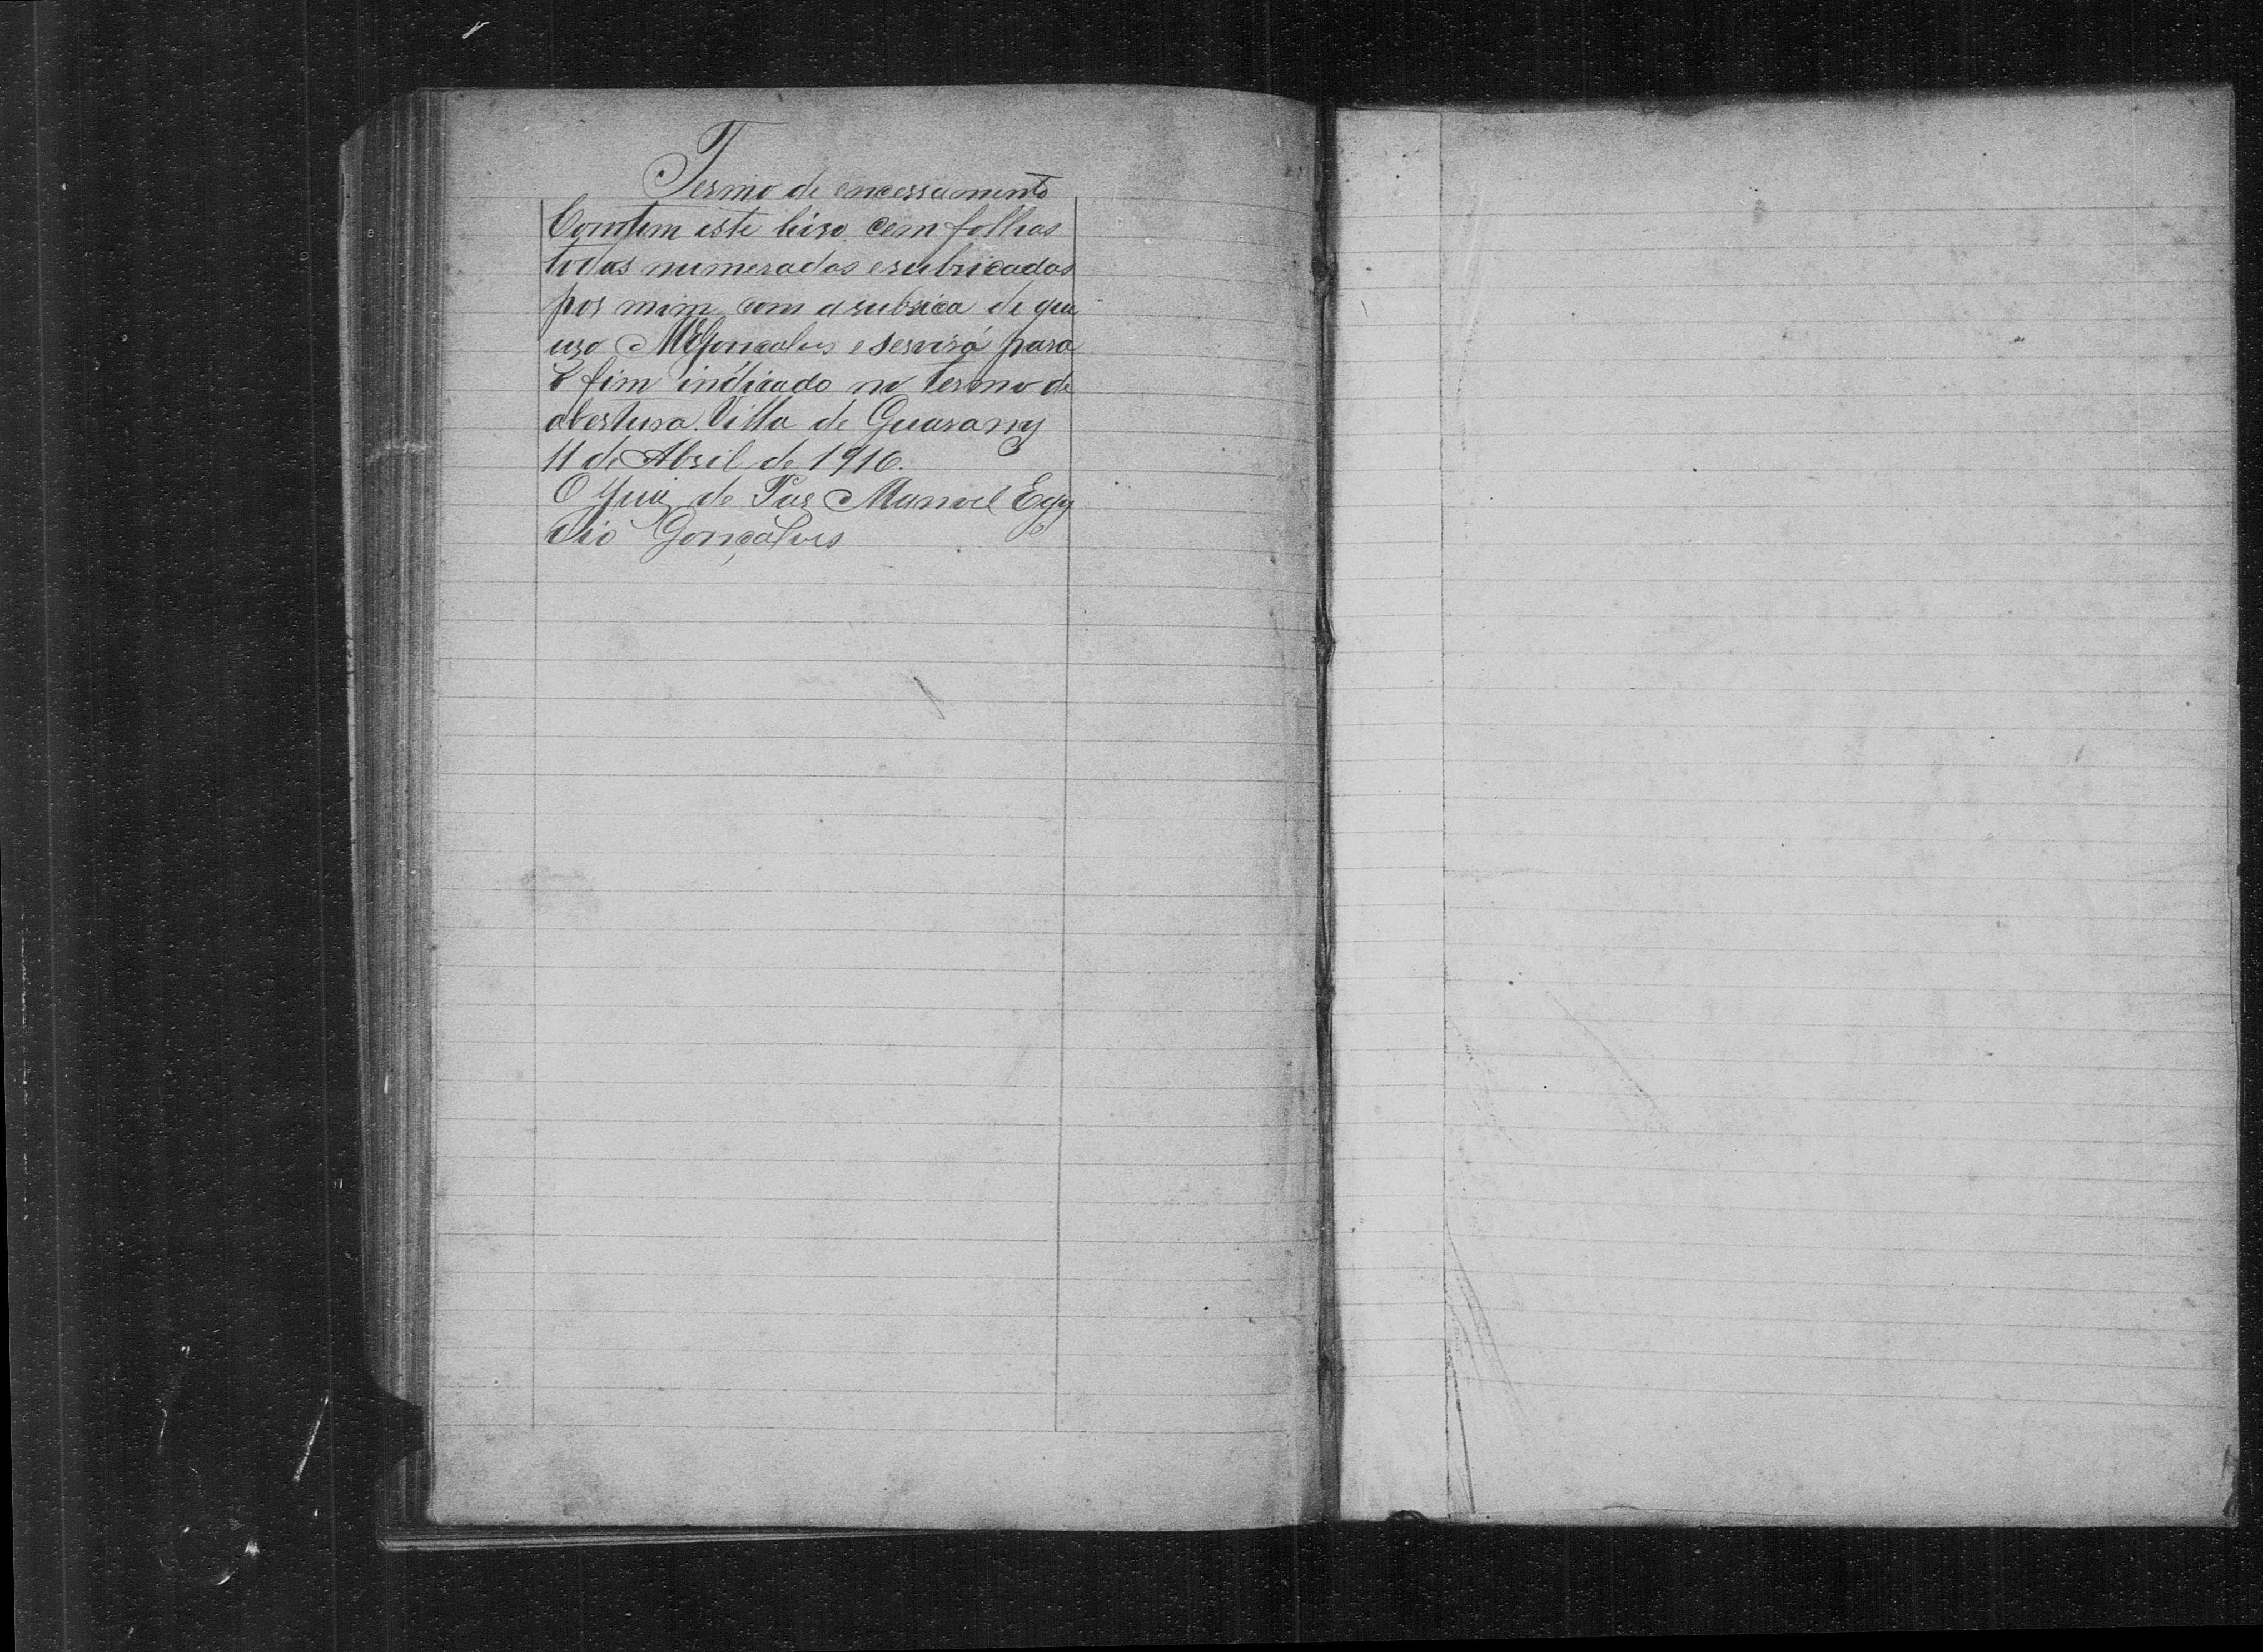 Termo de encerramento
Contem este livro cem folhas
todas numeradas e rubricadas
por mim com a rubrica de que
uso MEGonçalves e servirá para
o fim indicado no termo de
abertura. Villa de Guarany
11 de Abril de 1916.
O Juiz de Paz Manoel Egy
dio Gonçalves